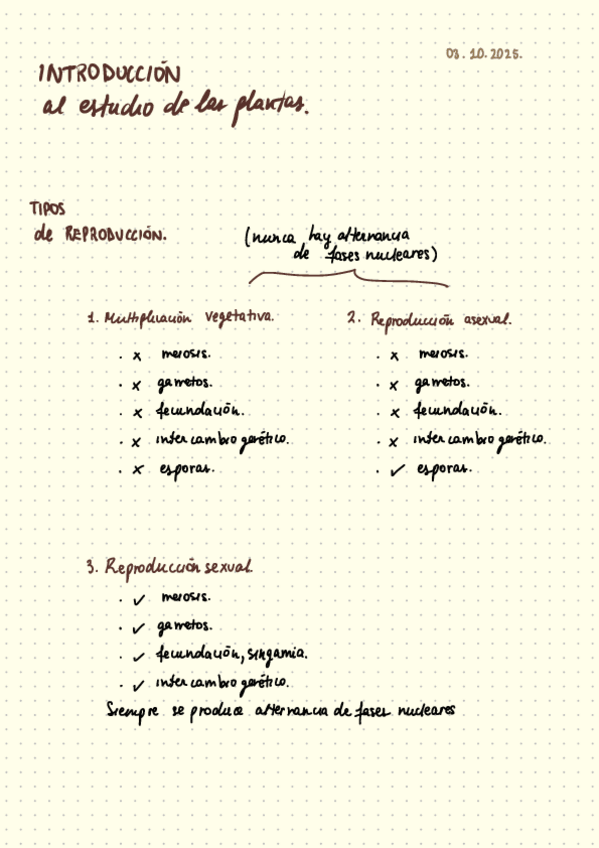 03.10.2025.
INTRODUCCIÓN
al estudio de las plantas.
TIPOS
de REPRODUCCIÓN.
(nunca hay alternancia
de fases nucleares)
1. Multiplicación vegetativa.
· x meiosis.
· x gametos.
· x fecundación.
· x intercambio genético.
· x esporas.
2. Reproducción asexual.
· x meiosis.
· x gametos.
· x fecundación.
· x intercambio genético.
· ✓ esporas.
3. Reproducción sexual.
· ✓ meiosis.
· ✓ gametos.
· ✓ fecundación, singamia.
· ✓ intercambio genético.
Siempre se produce alternancia de fases nucleares